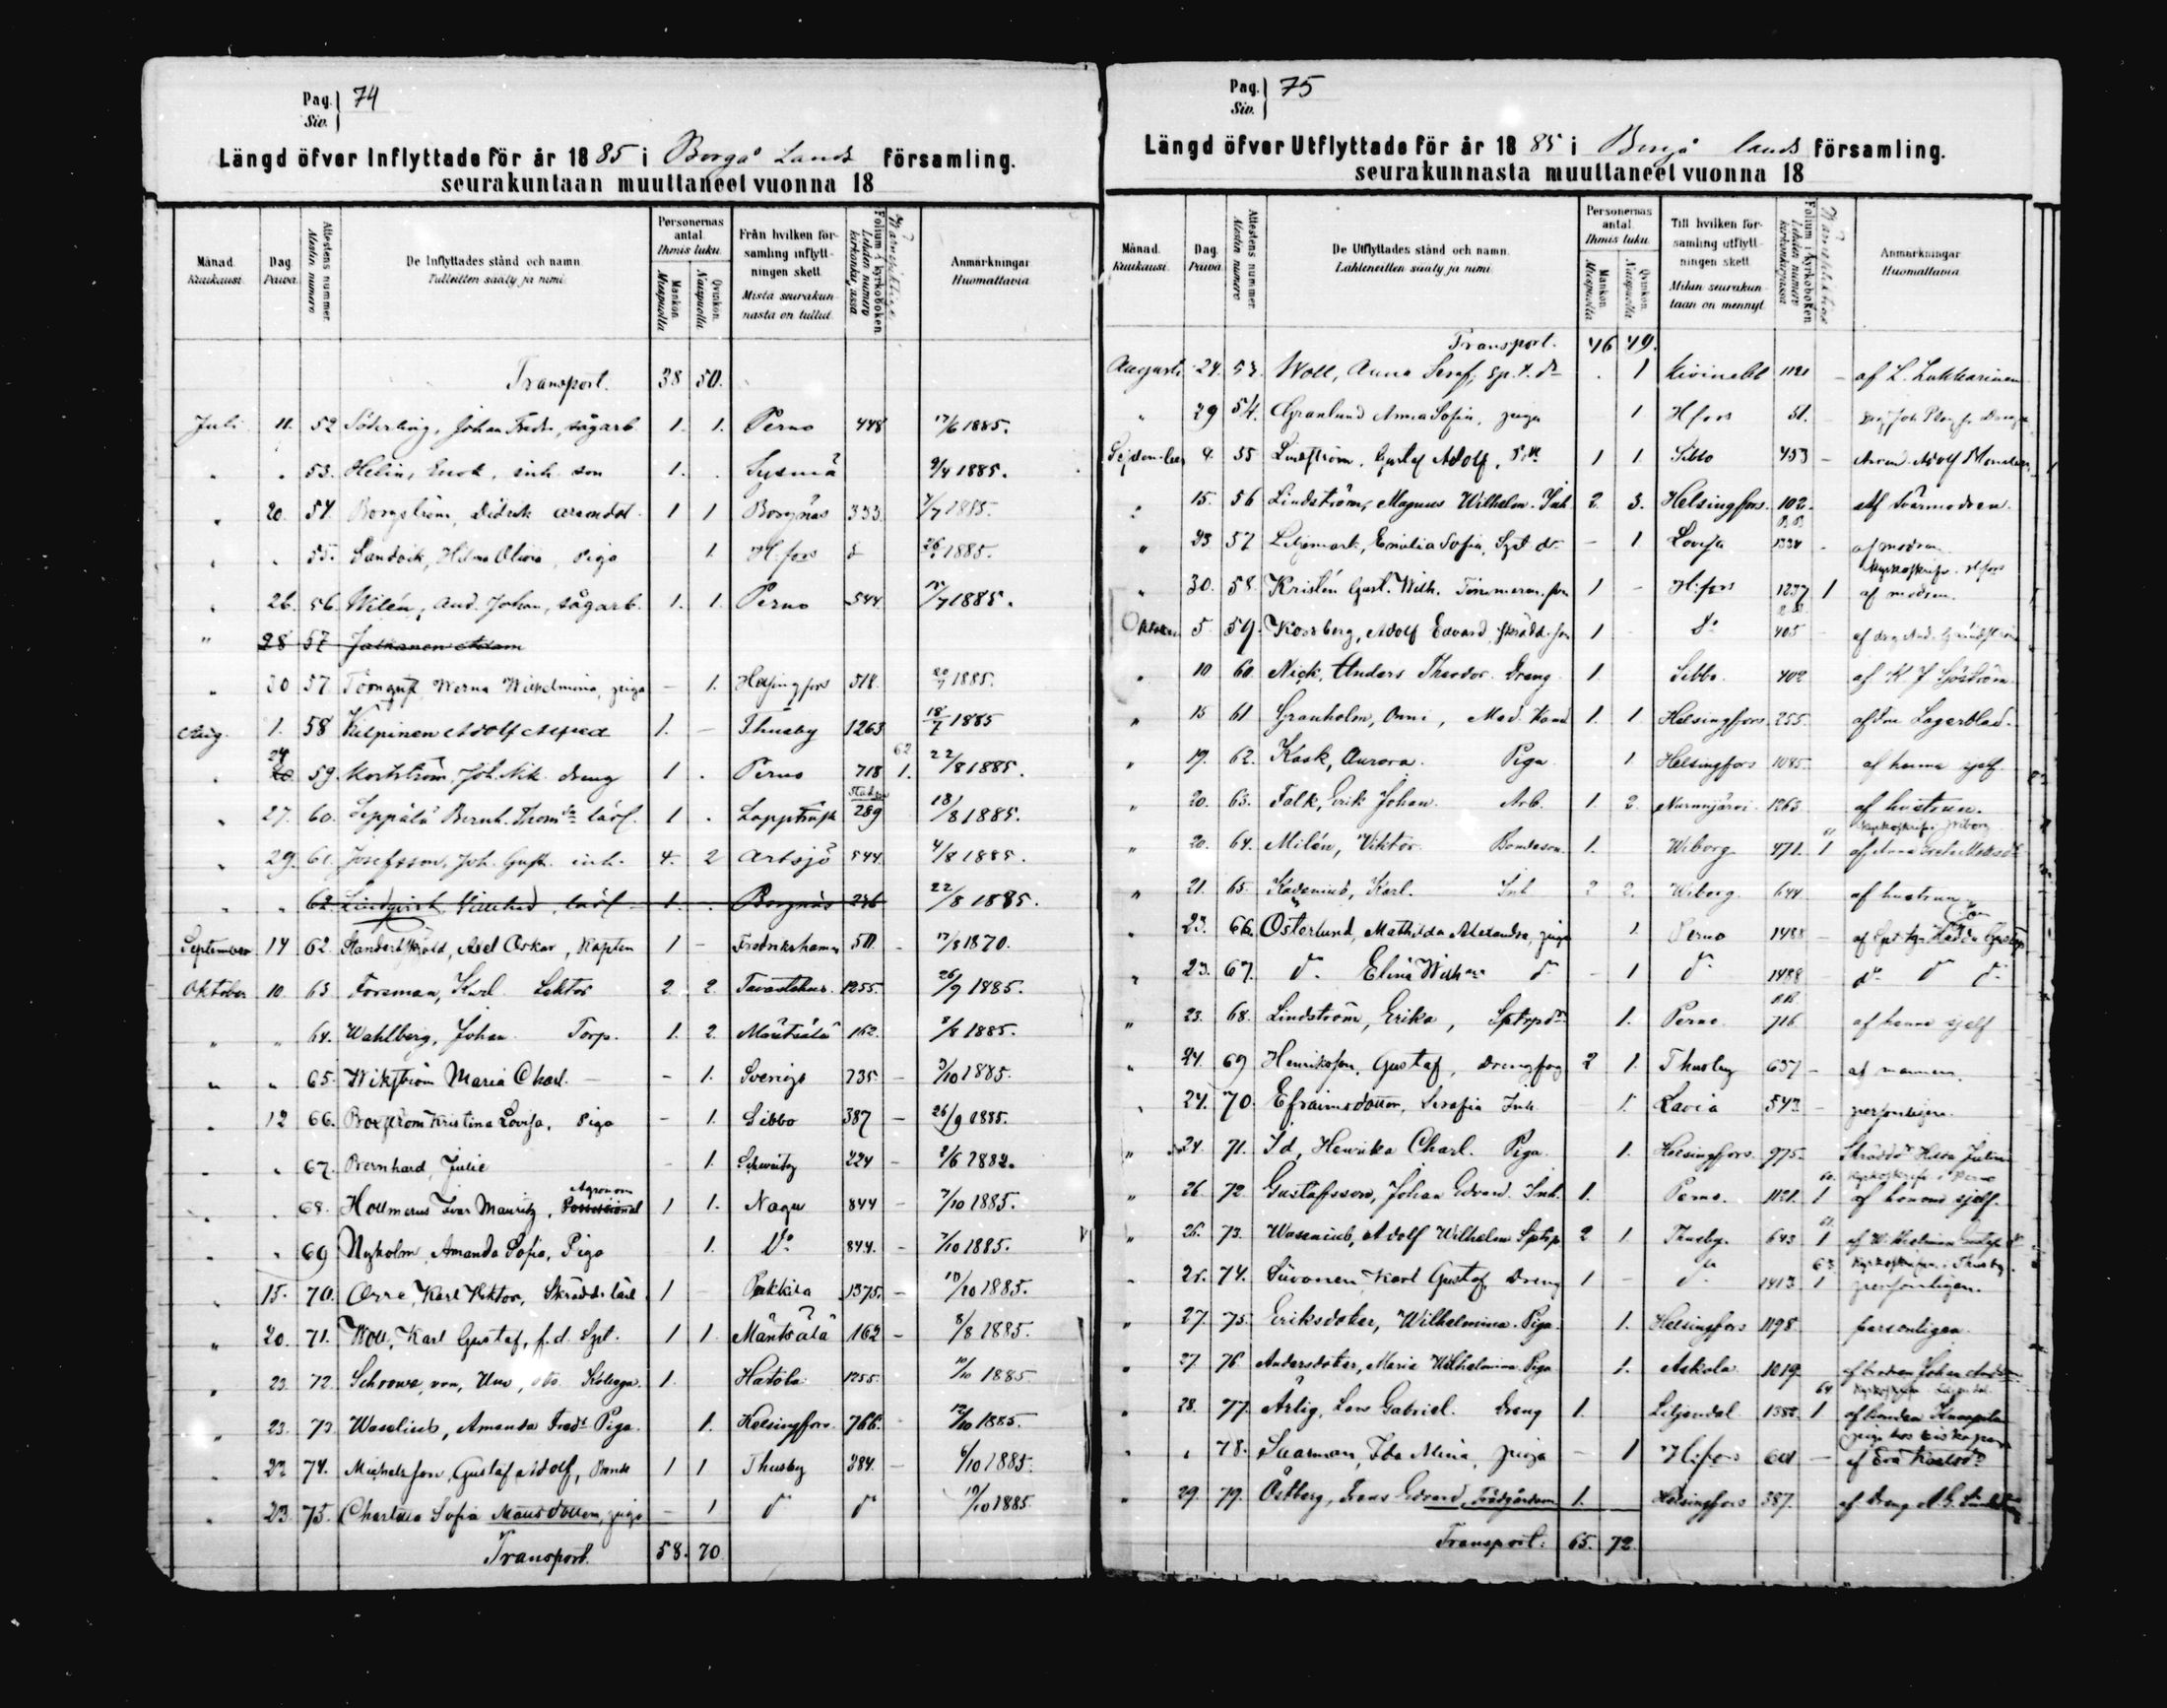 Pag. 74
Siv.
Längd öfver Inflyttade för år 1885 i Borgå Lands församling.
seurakuntaan muuttaneet vuonna 18
Månad. Kuukausi. Dag Päivä Attestens nummer. Mestin numero De Inflyttades stånd och namn. Tulleitten sääty ja nimi. Personernas antal. Ihmis luku. Mankön. Miespuolia Qvinkön. Naispuolia Från hvilken församling inflyttningen skett. Mistä seurakunnasta on tullut. Folium i kyrkoboken. Lehden numero kirkonkirjassa Anmärkningar. Huomattavia
Transport. 38 50.
Juli 11. 52 Söderling, Johan Fredr., sågarb. 1. 1. Perno 448 17/6 1885.
" " 53. Helin, Enok, inh. son 1. Sysmä 9/4 1885.
" 20. 54. Borgström, Didrik 1 1 Borgnäs 333 1885.
" " 55. Sandvik, Hilma Olivia, Piga 1. H.fors 1885.
" 26. 56. Wilén, And. Johan, sågarb. 1. 1. Perno 544 1885.
" 28 57 Jalkanen Adam
" 30 57. Törnqvist, Werna Wilhelmina, piga – 1. Helsingfors 518. 1885.
Aug. 1. 58 Kilpinen Adolf Alfred 1. – Thusby 1263 18/7 1885
" 24 59. Kortström, Joh. Nik. dreng 1 . Perno 718 62 1. 22/8 1885.
" 27. 60. Seppälä Bernh. Thom. lärl. 1 . Lappträsk 289 18/8 1885.
" 29. 61. Josefsson, Joh. Gust. inh. 4. 2 Artsjö 544. 4/8 1885.
" " 62. Lindqvist, lärl. 1. . Borgnäs 246 22/8 1885.
September 14 62. Standertskjöld, Axel Oskar, Kapten 1 – Fredrikshamn 511. – 17/8 1870.
Oktober 10. 63. Forsman, Karl. Lektor 2. 2. Tavastehus. 1255. 26/9 1885.
" " 64. Wahlberg, Johan. Torp. 1. 2. Mäntsälä 162. 8/8 1885.
" " 65. Wikström Maria Charl. – – 1. Sverige 735. – 3/10 1885.
" 12 66. Boxström Kristina Lovisa, Piga – 1. Sibbo 387 – 26/9 1885.
" " 67. Bernhard, Julie – 1. Schweitz 224 – 8/6 1882.
" " 68. Hollmerus Ivar Mauritz, Agronom 1 1. Nagu 844 – 7/10 1885.
" " 69 Nyholm, Amanda Sofia, Piga 1. Do 844. – 7/10 1885.
" 15. 70. Orre, Karl Viktor, Skrädd. lärl. 1 – Pukkila 1375. – 10/10 1885.
" 20. 71. Woll, Karl Gustaf, f.d. Spt. 1 1. Mäntsälä 162 – 8/8 1885.
" 23. 72. Schrowe, von, Uno, Kollega. 1. Hartola 1255. 10/10 1885.
" 23. 73. Waselius, Amanda Fredr. Piga. 1. Helsingfors. 766. 12/10 1885.
" 23 74. Michelsson, Gustaf Adolf, Bonde 1 1 Thusby 384. – 6/10 1885.
" 23. 75. Charlotta Sofia Mausdotter, piga – 1 do do 10/10 1885
Transport. 58. 70.
Pag. 75
Siv.
Längd öfver Utflyttade för år 1885 i Borgå lands församling.
seurakunnasta muuttaneet vuonna 18
Månad. Kuukausi. Dag. Päivä Attestens nummer. Mestin numero De Utflyttades stånd och namn. Lähteneitten sääty ja nimi. Personernas antal. Ihmis luku. Mankön. Miespuolia Qvinkön. Naispuolia Till hvilken församling utflyttningen skett. Mihin seurakuntaan on mennyt. Folium i kyrkoboken Lehden numero kirkonkirjassa Anmärkningar. Huomattavia
Transport. 46 49.
Augusti 24. 53. Woll, Anna Seraf, Sp. t. dr . 1 Kivinebb 1121 – af L. Lukkarinen
" 29 54. Granlund Anna Sofia, piga 1 H.fors 51.
September 4. 55 Lindström, Gustaf Adolf, 1 1. Sibbo 453 – Adolf
" 15. 56 Lindström, Magnus Wilhelm. Inh. 2. 3. Helsingfors. 102. Af svärmodren.
" 23. 57 Liljemark, Emilia Sofia, Spt. dr. – 1 Lovisa 1334 – af modren
" 30. 58. Kristén Gust. Wilh. Timmerm. son 1 – H.fors 1237 1 af modren.
Oktober 5. 59. Korsberg, Adolf Edvard, skrädd. son 1 – Do 405 – af drg And. Grundström
" 10 60. Nick, Anders Theodor. Dreng 1. Sibbo. 402 af K. J. Sjöström.
" 15 61 Granholm, Onni, Med. Kand 1. 1. Helsingfors. 255. af Lagerblad.
" 19. 62. Kask, Aurora. Piga 1 Helsingfors 1085. af henne sjelf.
" 20. 63. Falk, Erik Johan. Arb. 1. 2. Nurmijärvi. 1263. af hustrun.
" 20. 64. Milén, Viktor. Bondeson. 1. Wiborg. 471. 1
" 21. 65. Kadenius, Karl. Inh 2 2. Wiborg. 644 af hustrun
" 23. 66. Österlund, Mathilda Alexandra, piga 1. Perno 1488 –
" 23. 67. do Elina Wilhna do – 1 do 1488 – do do do
" 23. 68. Lindström, Erika, Sptorpdr 1. Perno. 716 af henne sjelf
" 24. 69 Henriksson, Gustaf, Drengfog. 2 1. Thusby 657 – af mannen.
" 24. 70. Efraimsdotter, Serafia Inh. 1. Lavia 542 – personligen.
" 24. 71. Id, Henrika Charl. Piga. 1. Helsingfors. 975.
" 26. 72. Gustafsson, Johan Edvard. Inh. 1. Perno. 1121. 1 af honom sjelf.
" 26. 73. Wasenius, Adolf Wilhelm Sptp 2 1. Thusby. 643 1
" 25. 74. Siivonen Karl Gustaf Dreng 1 – do 1413 1 personligen.
" 27. 75. Eriksdoter, Wilhelmina. Piga. 1. Helsingfors 1198. personligen.
" 27. 76 Andersdoter, Maria Wilhelmina Piga 1. Askola 1019.
" 28. 77. Ärlig, Lars Gabriel. Dreng 1. Liljendal 1382. 1
" " 78. Saarman, Ida Mina, piga – 1 H.fors 601 – af Eva Karlsdr
" 29. 79. Östberg, Frans Edvard, 1. Helsingfors 387.
Transport: 65. 72.